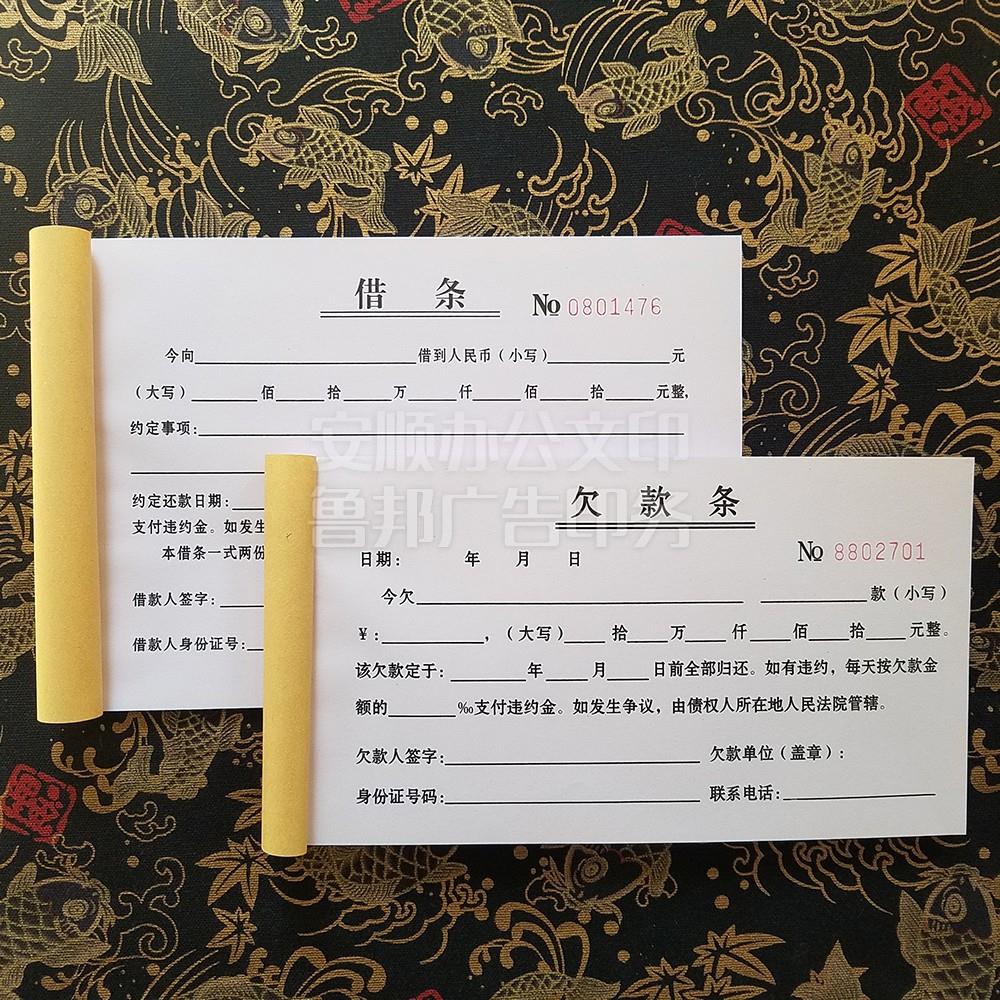 借 条
No 0801476
今向____借到人民币(小写)____元
(大写)____佰____拾____万____仟____佰____拾____元整,
约定事项:____
约定还款日期:____
支付违约金。如发生
本借条一式两份
借款人签字:____
借款人身份证号:____
安顺办公文印
鲁邦广告印务
欠 款 条
No 8802701
日期: 年 月 日
今欠____ ____款(小写)
¥:____,(大写)____拾____万____仟____佰____拾____元整。
该欠款定于:____年____月____日前全部归还。如有违约,每天按欠款金
额的____‰支付违约金。如发生争议,由债权人所在地人民法院管辖。
欠款人签字:____ 欠款单位(盖章):
身份证号码:____ 联系电话:____